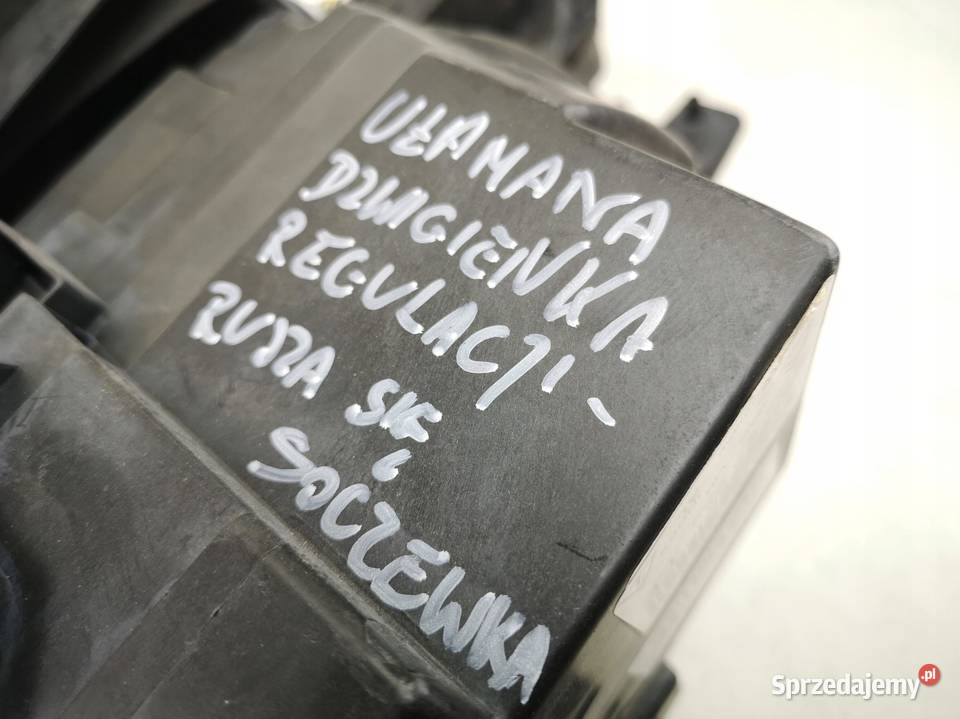 UŁAMANA
DZWIGIENKA
REGULACJI -
RUSZA SIĘ
SOCZEWKA
Sprzedajemy.pl